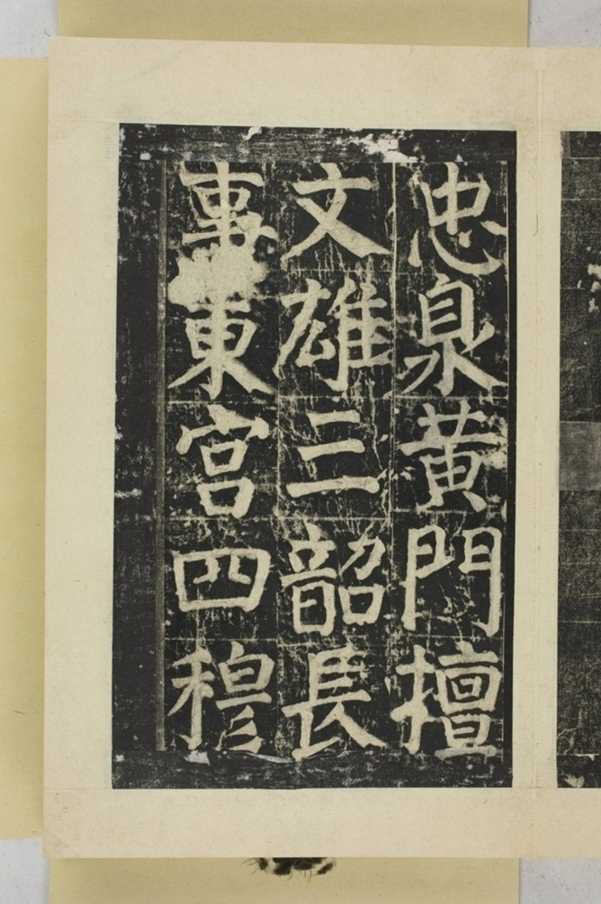 忠臮黄門擅
文雄三韶長
事東宫四穆